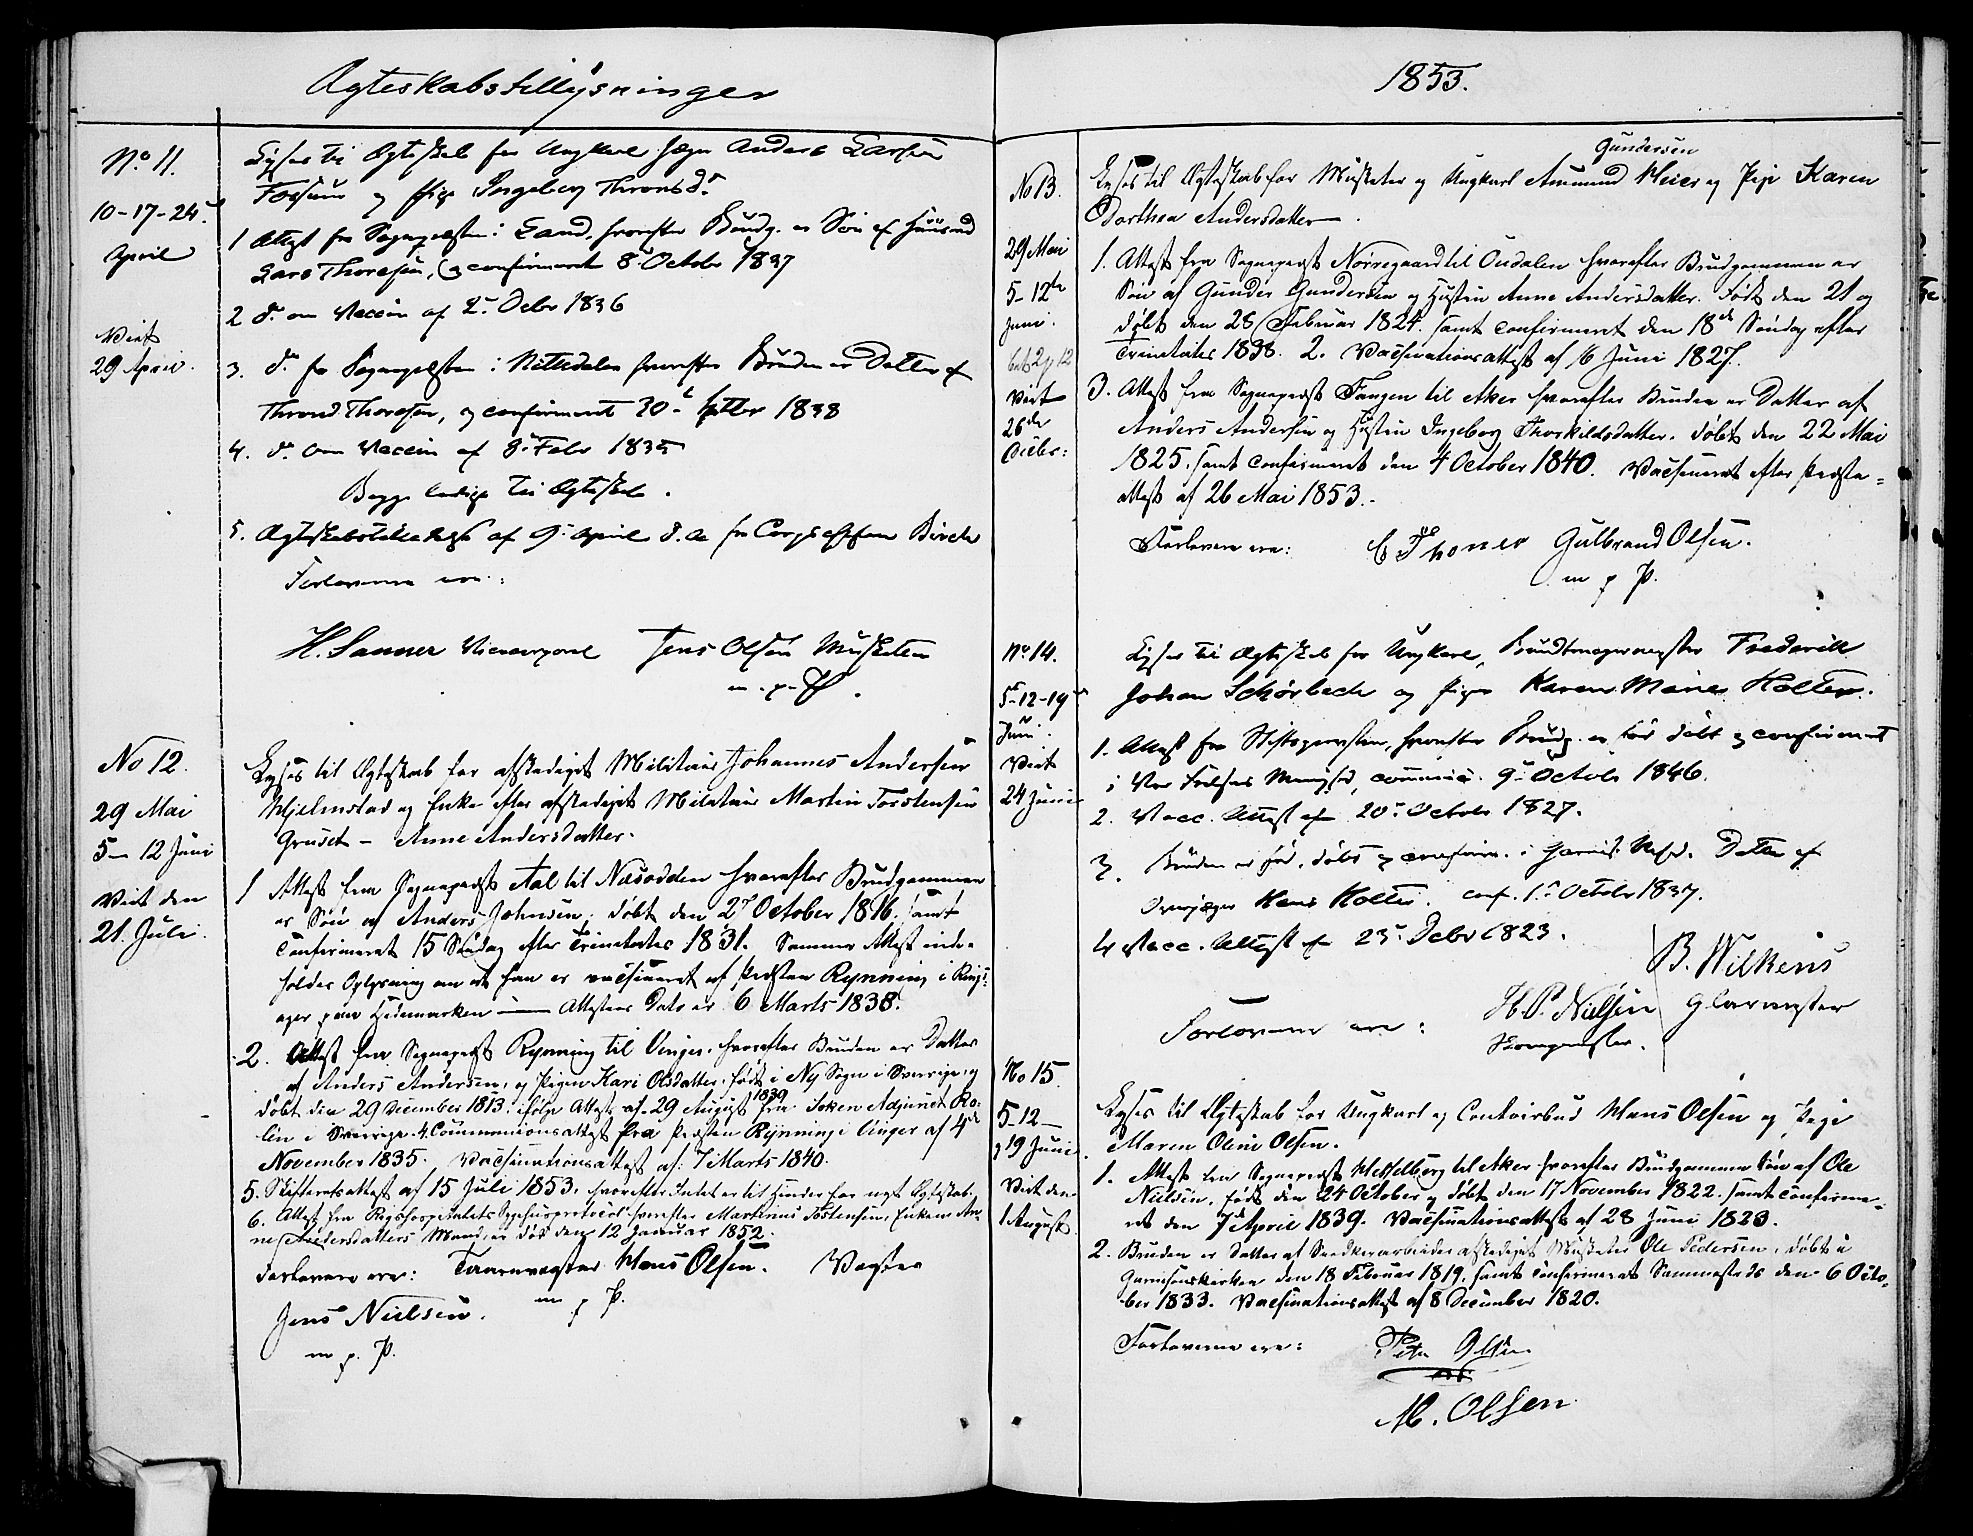 Ægteskabstillysninger
No 11.
10-17-24
April
Viet
29 April.
Lyses til Ægteskab for Ungkarl Jæger Anders Larsen
Fossum og Pige Ingeborg Throndsd.
1 Attest fra Sognepresten i Land, hvorefter Brudg. er Søn af Huusmd
Lars Thoresen, og confirmeret 8. October 1837
2 do. om Vaccin af 2. Octbr 1836
3. do. fra Sognepresten i Nittedalen hvorefter Bruden er Datter af
Thrond Thoresen, og confirmeret 30. Septbr 1838
4. do. om Vaccin af 8. Febr 1835
Begge ledige til Ægteskab.
5. Ægteskabstilladelse af 9. April d. A. fra Corpschefen Birch
Forloverne ere:
H. Sanner Vicecorporal Jens Olsen Musketer
m. p. P.
No 12.
29 Mai
5- 12 Juni
Viet den
21. Juli.
Lyses til Ægteskab for afskediget Militair Johannes Andersen
Hjelmstad og Enke efter afskediget Militair Martin Torstensen
Gruset - Anne Andersdatter.
1 Attest fra Sogneprest Aal til Næsodden hvorefter Brudgommen
er Søn af Anders Johnsen, døbt den 27 October 1816. samt
confirmeret 15 Søndag efter Trinitatis 1831. Samme Attest inde-
holder Oplysning om at han er vacsineret af Presten Rynning i Rings-
ager paa Hedemarken — Attestens Dato er 6 Marts 1838.
2. Attest fra Sogneprest Rynning til Vinger. hvorefter Bruden er Datter
af Anders Andersen, og Pigen Kari Olsdatter, født i Ny Sogn i Sverrige, og
døbt den 29 December 1813. ifølge Attest af 29 August 1839 fra Soken Adjunct Ro-
lin i Sverrige. 4. Communionsattest fra Presten Rynning i Vinger af 4de
November 1835. Vacsinationsattest af: 7 Marts 1840.
5. Skifteretsattest af 15 Juli 1853, hvorefter Intet er til Hinder for nyt Ægteskab.
6. Attest fra Rigshospitalets Sygehusprotocol hvorefter Martinius Tostensen, Enken An-
ne Andersdatters Mand, er død den 12 Januar 1852.
Forloverne ere: Taarnvægter Hans Olsen. Vægter
m p P.
Jens Nielsen.
m. p. P.
1853.
No 13.
29 Mai
5- 12te
Juni.
Viet
26de
Octbr:
Gundersen
Lyses til Ægteskab for Musketer og Ungkarl Amund Meier og Pige Karen
Dorthea Andersdatter.
1. Attest fra Sogneprest Nørregaard til Oudalen hvorefter Brudgommen er
Søn af Gunder Gundersen og Hustru Anne Andersdatter. Født den 21 og
døbt den 28 Februar 1824. samt confirmeret den 18de Søndag efter
Trinitatis 1838. 2. Vacsinationsattest af 16 Juni 1827.
3. Attest fra Sogneprest Fangen til Aker hvorefter Bruden er Datter af
Anders Andersen og Hustru Ingeborg Thorkildsdatter. døbt den 22 Mai
1825. samt confirmeret den 4 October 1840. Vacsineret efter Preste-
attest af 26 Mai 1853.
Forloverne ere: C Thones Gulbrand Olsen.
m p P.
No 14.
5-12-19
Juni.
Viet
24 Juni
Lyses til Ægteskab for Ungkarl, Bundtmagermester Frederik
Johan Schørbech og Pige Karen Marie Holter.
1. Attest fra Stiftsprovsten, hvorefter Brudg. er her døbt og confirmeret
i Vor Frelsers Menighed, communic. 9. Octob. 1846.
2. Vacc. Attest af 20. Octob. 1827.
3. Bruden er fød, døbt og confirm. i Garnis. Mgh. Datter af
Overjæger Hans Holter. conf. 1. Octob 1837.
4 Vacc. Attest af 23. Octbr 1823.
Forloverne ere: H. P. Nielsen B. Wilkens
Glarmester
No 15.
5-12-
og 19 Juni.
Viet den
1 August
Lyses til Ægteskab for Ungkarl og Contoirbud Hans Olsen og Pige
Maren Oline Olsen.
1. Attest fra Sogneprest Hesselberg til Aker hvorefter Brudgommen Søn af Ole
Nielsen, født den 24 October og døbt den 17 November 1822. samt confirme-
ret den 7de April 1839. Vacsinationsattest af 28 Juni 1823.
2. Bruden er Datter af afskediget Musketer Ole Pedersen, døbt i
Garnisonskirken den 18 Februar 1819. samt confirmeret Sammesteds den 6 Octo-
ber 1833. Vacsinationsattest af 8 December 1820.
Forloverne ere: Peter Olsen
M. Olsen.